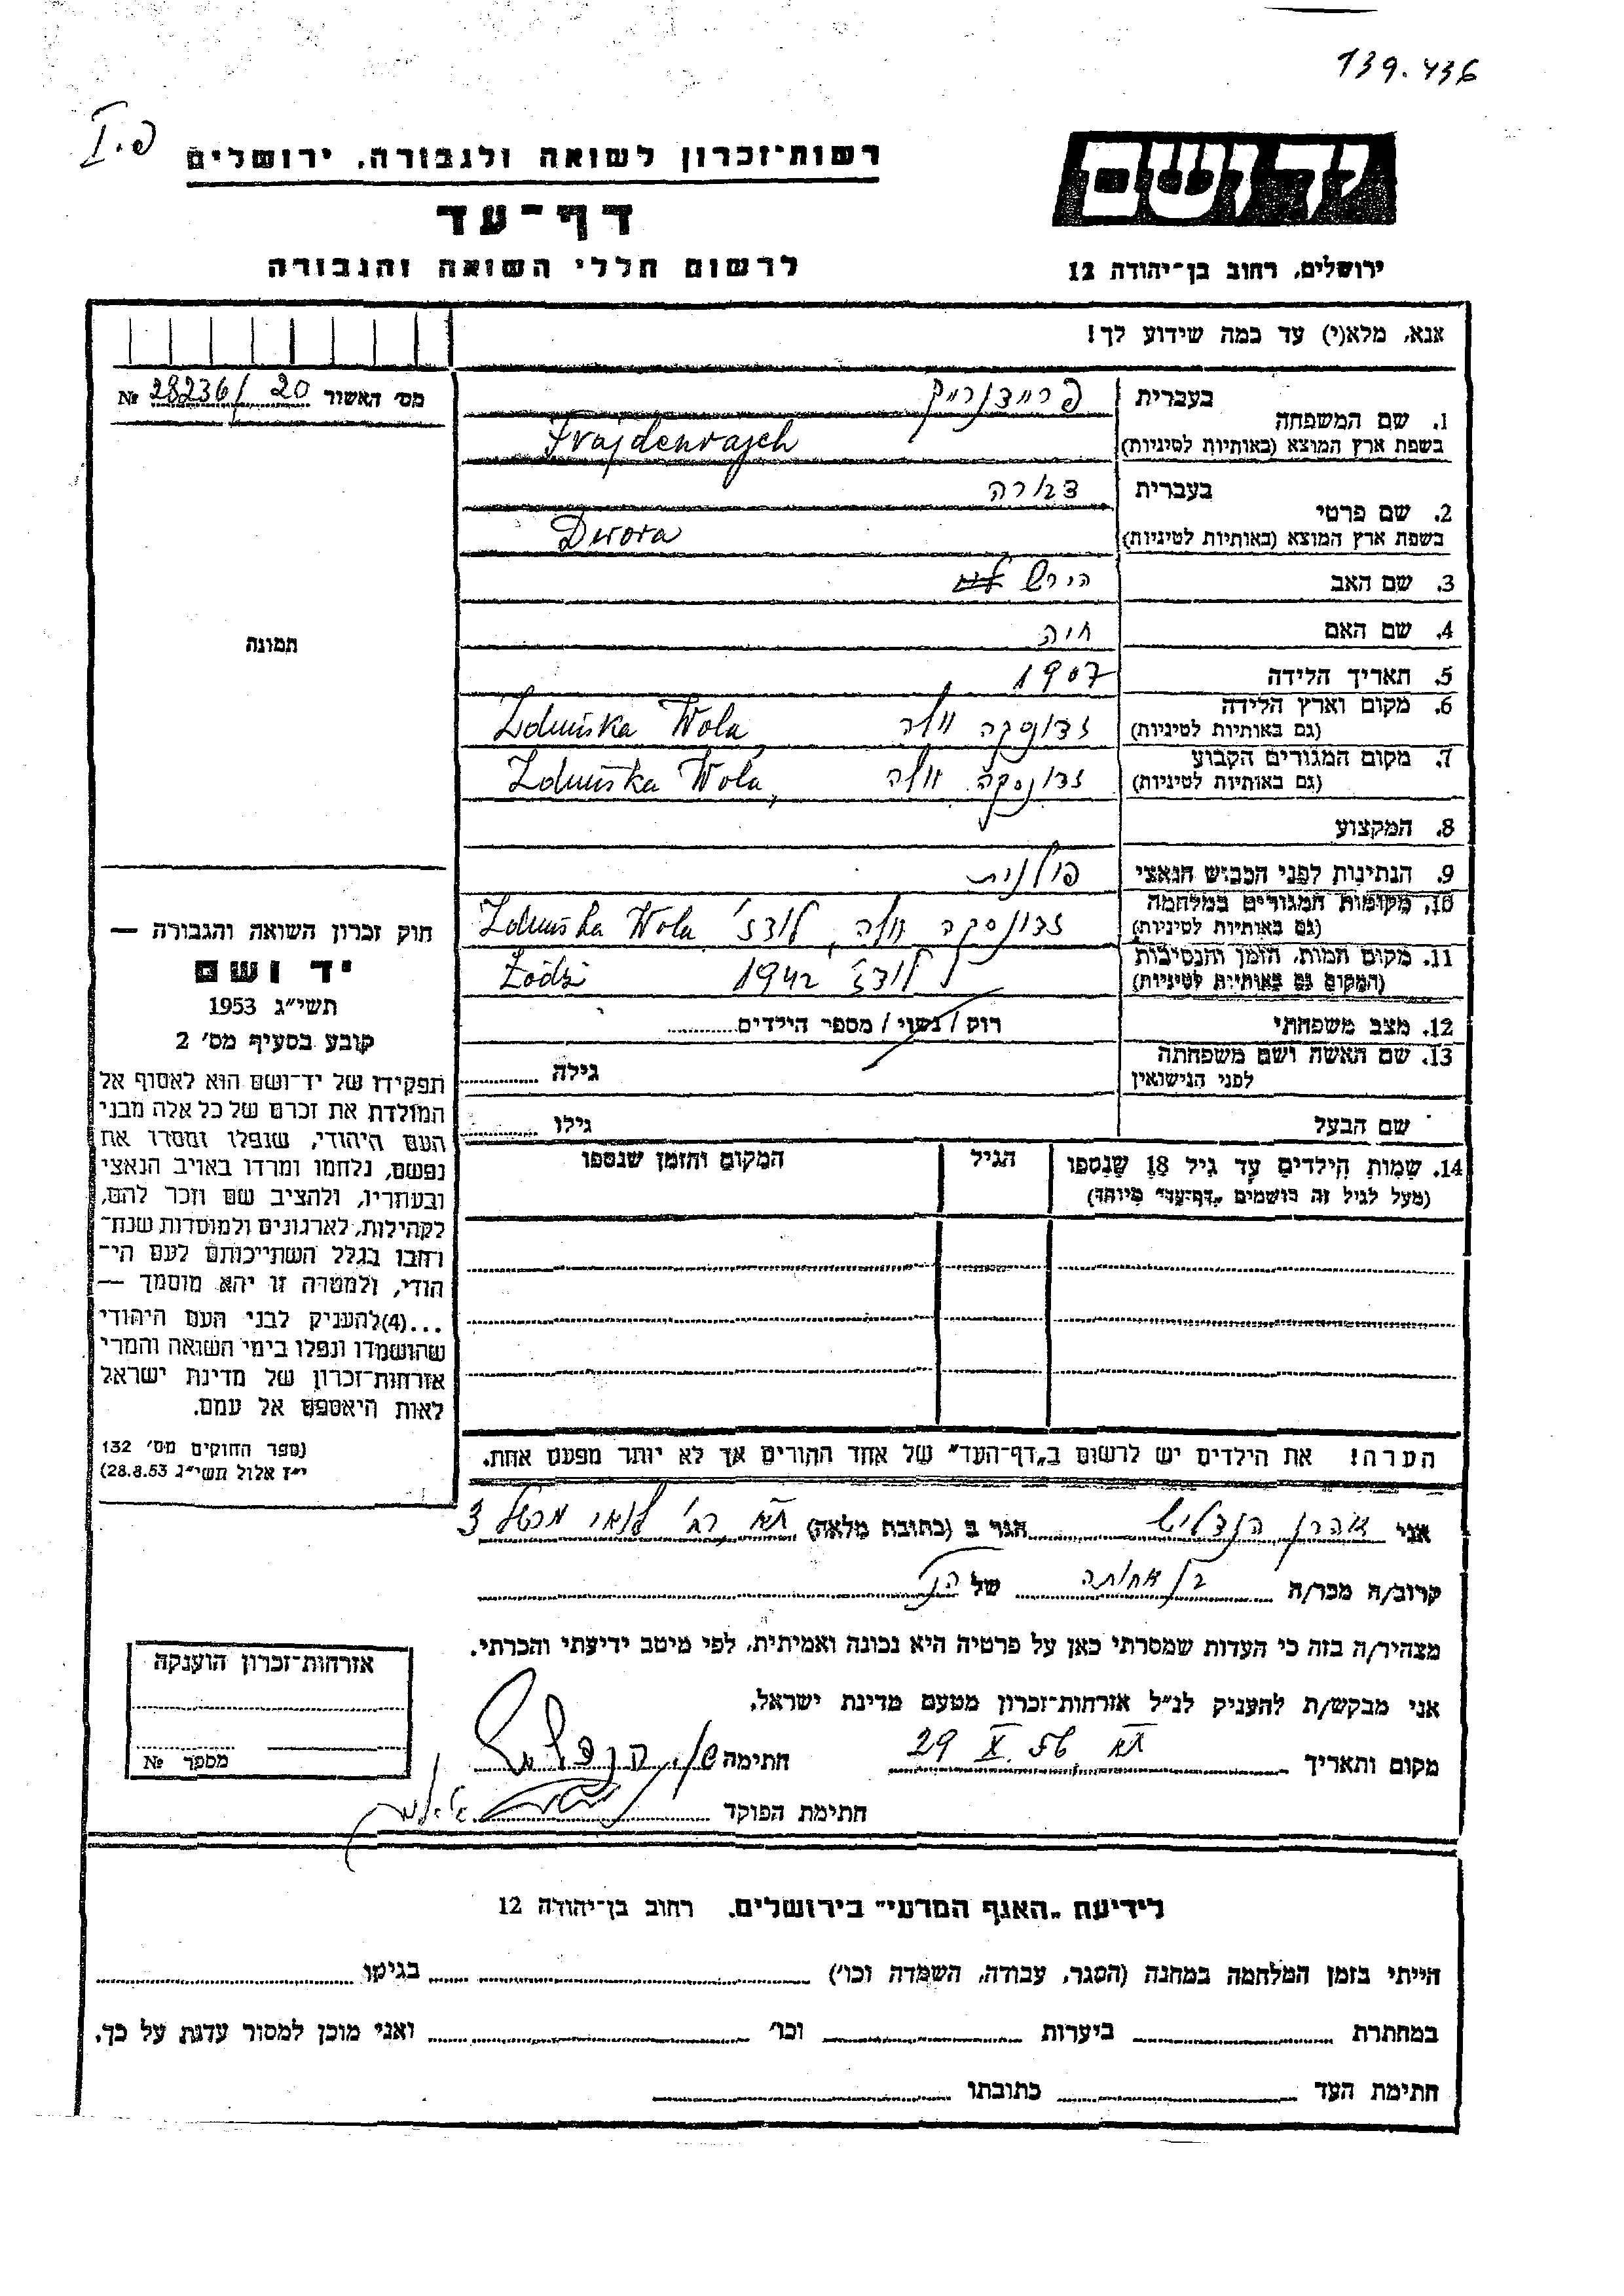 139.436
פ.I
רשות־זכרון לשואה ולגבורה, ירושלים
יד ושם
דף־עד
לרשום חללי השואה והגבורה
ירושלים, רחוב בן־יהודה 12
אנא, מלא(י) עד כמה שידוע לך!
מס׳ האשור 20 /28236 №
1. שם המשפחה
בעברית
פריידנרייך
בשפת ארץ המוצא (באותיות לטיניות)
Frajdenrajch
2. שם פרטי
בעברית
דבורה
בשפת ארץ המוצא (באותיות לטיניות)
Dwora
3. שם האב
הירש
4. שם האם
חיה
5. תאריך הלידה
1907
6. מקום וארץ הלידה
(גם באותיות לטיניות)
זדונסקה וולה Zduńska Wola
7. מקום המגורים הקבוע
(גם באותיות לטיניות)
זדונסקה וולה Zduńska Wola,
8. המקצוע
9. הנתינות לפני הכבוש הנאצי
פולנית
10. מקומות המגורים במלחמה
(גם באותיות לטיניות)
זדונסקה וולה, לודז׳ Zduńska Wola
11. מקום המות, הזמן והנסיבות
(המקום גם באותיות לטיניות)
לודז׳ 1942 Łódź
12. מצב משפחתי
רוק / נשוי / מספר הילדים
13. שם האשה ושם משפחתה
לפני הנישואין
גילה
שם הבעל
גילו
14. שמות הילדים עד גיל 18 שנספו
(מעל לגיל זה רושמים „דף־עד״ מיוחד)
הגיל
המקום והזמן שנספו
הערה! את הילדים יש לרשום ב„דף־העד״ של אחד ההורים אך לא יותר מפעם אחת.
תמונה
חוק זכרון השואה והגבורה —
יד ושם
תשי״ג 1953
קובע בסעיף מס׳ 2
תפקידו של יד־ושם הוא לאסוף אל
המולדת את זכרם של כל אלה מבני
העם היהודי, שנפלו ומסרו את
נפשם, נלחמו ומרדו באויב הנאצי
ובעוזריו, ולהציב שם וזכר להם,
לקהילות, לארגונים ולמוסדות שנח־
רחבו בגלל השתייכותם לעם הי־
הודי, ולמטרה זו יהא מוסמך —
...(4)להעניק לבני העם היהודי
שהושמדו ונפלו בימי השואה והמרי
אזרחות־זכרון של מדינת ישראל
לאות היאספם אל עמם.
(ספר החוקים מס׳ 132
י״ז אלול תשי״ג 28.8.53)
אני אהרן הנדליס הגר ב (כתובת מלאה) תא רח׳ 3
קרוב/ה מכר/ה בן אחותה של הנ״ל
מצהיר/ה בזה כי העדות שמסרתי כאן על פרטיה היא נכונה ואמיתית, לפי מיטב ידיעתי והכרתי.
אני מבקש/ת להעניק לנ״ל אזרחות־זכרון מטעם מדינת ישראל.
מקום ותאריך תא 29 X. 56 חתימה
חתימת הפוקד
אזרחות־זכרון הוענקה
מספר №
לידיעת „האגף המדעי״ בירושלים, רחוב בן־יהודה 12
הייתי בזמן המלחמה במחנה (הסגר, עבודה, השמדה וכו׳) בגיטו
במחתרת ביערות וכו׳ ואני מוכן למסור עדות על כך.
חתימת העד כתובתו